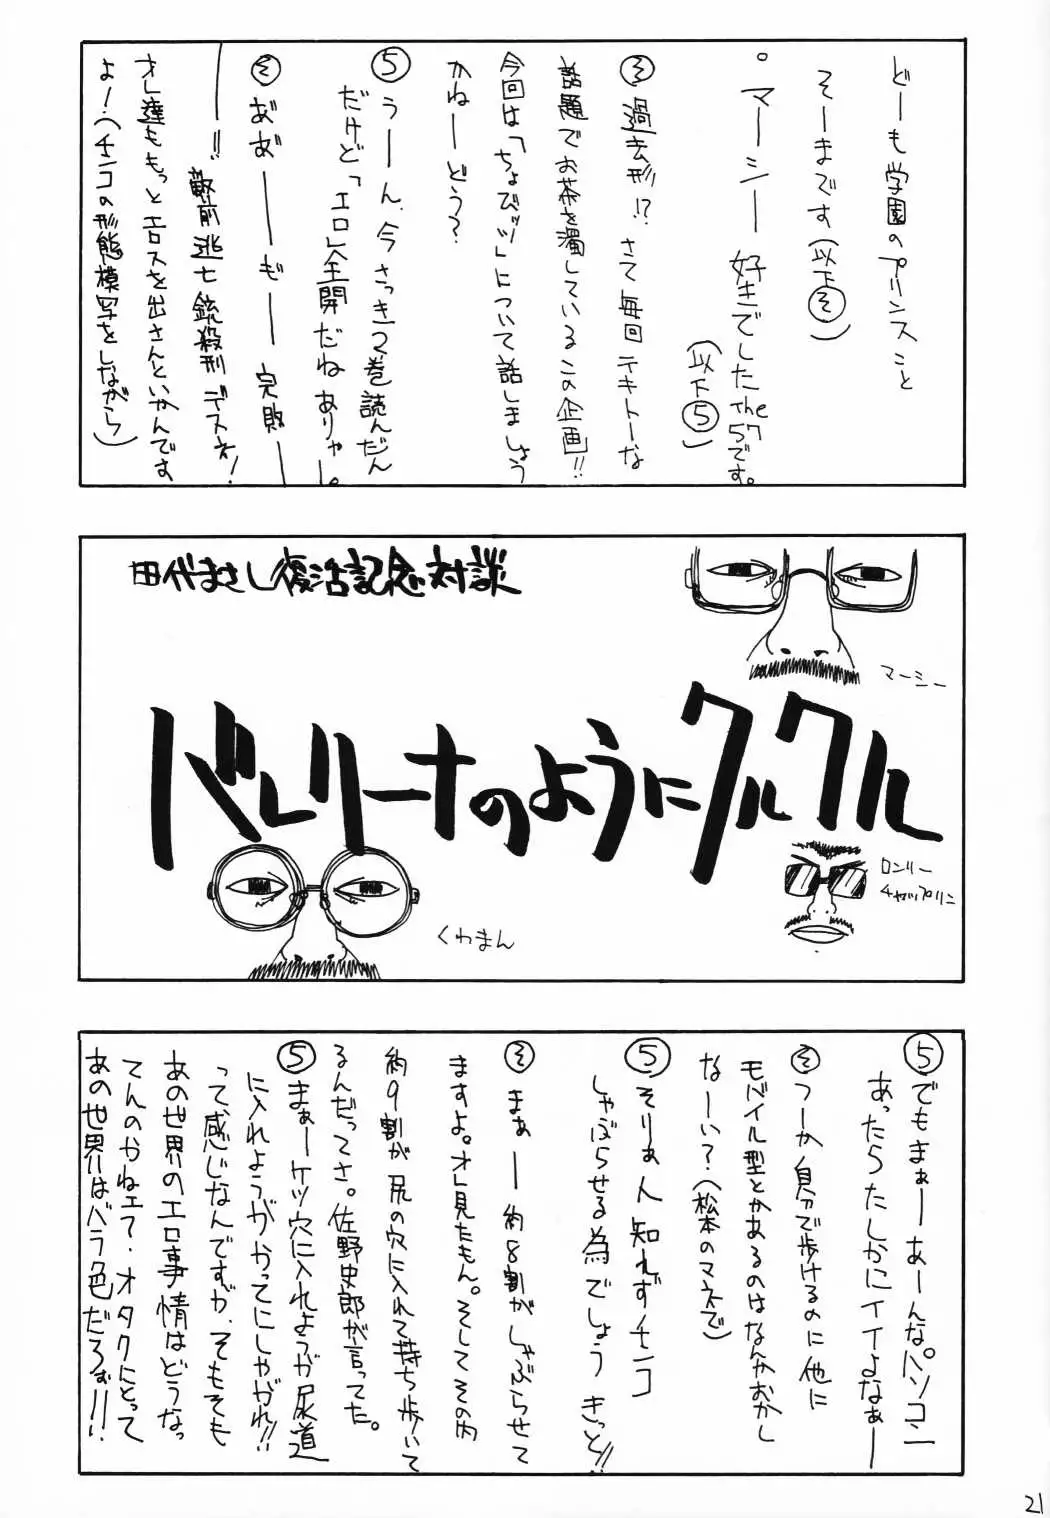 どーも学園のプリンスこと
そーまです(以下そ)
・マーシー好きでしたThe
57です。
(以下5)
そ 過去形!?さて毎回テキトーな
話題でお茶を濁しているこの企画!!
今回は「ちょびッツ」について話しましょう
かねーどう?
5 うーん、今さっき2巻読んだん
だけど「エロ」全開だねありゃー。
そ あ゛あ゛ーーもーー完敗ー
ー!!敵前逃亡銃殺刑デスネ!
オレ達ももっとエロスを出さんといかんです
よ!(チンコの形態模写をしながら)
田代まさし復活記念対談
マーシー
バレリーナのようにクルクル
くわまん
ロンリー
チャップリン
5 でもまぁーあーんなパソコン
あったらたしかにイイよなぁー
そ つーか自分で歩けるのに他に
モバイル型とかあるのはなんかおかし
なーい?(松本のマネで)
5 そりゃ人知れずチンコ
しゃぶらせる為でしょうきっと!!
そ まぁー約8割がしゃぶらせて
ますよ。オレ見たもん。そしてその内
約9割が尻の穴に入れて持ち歩いて
るんだってさ。佐野史郎が言ってた。
5 まぁーケツ穴に入れようが尿道
に入れようがかってにしやがれ!!
って感じなんですが、そもそも
あの世界のエロ事情はどうなっ
てんのかねェ?・オタクにとって
あの世界はバラ色だろぉ!!!
21